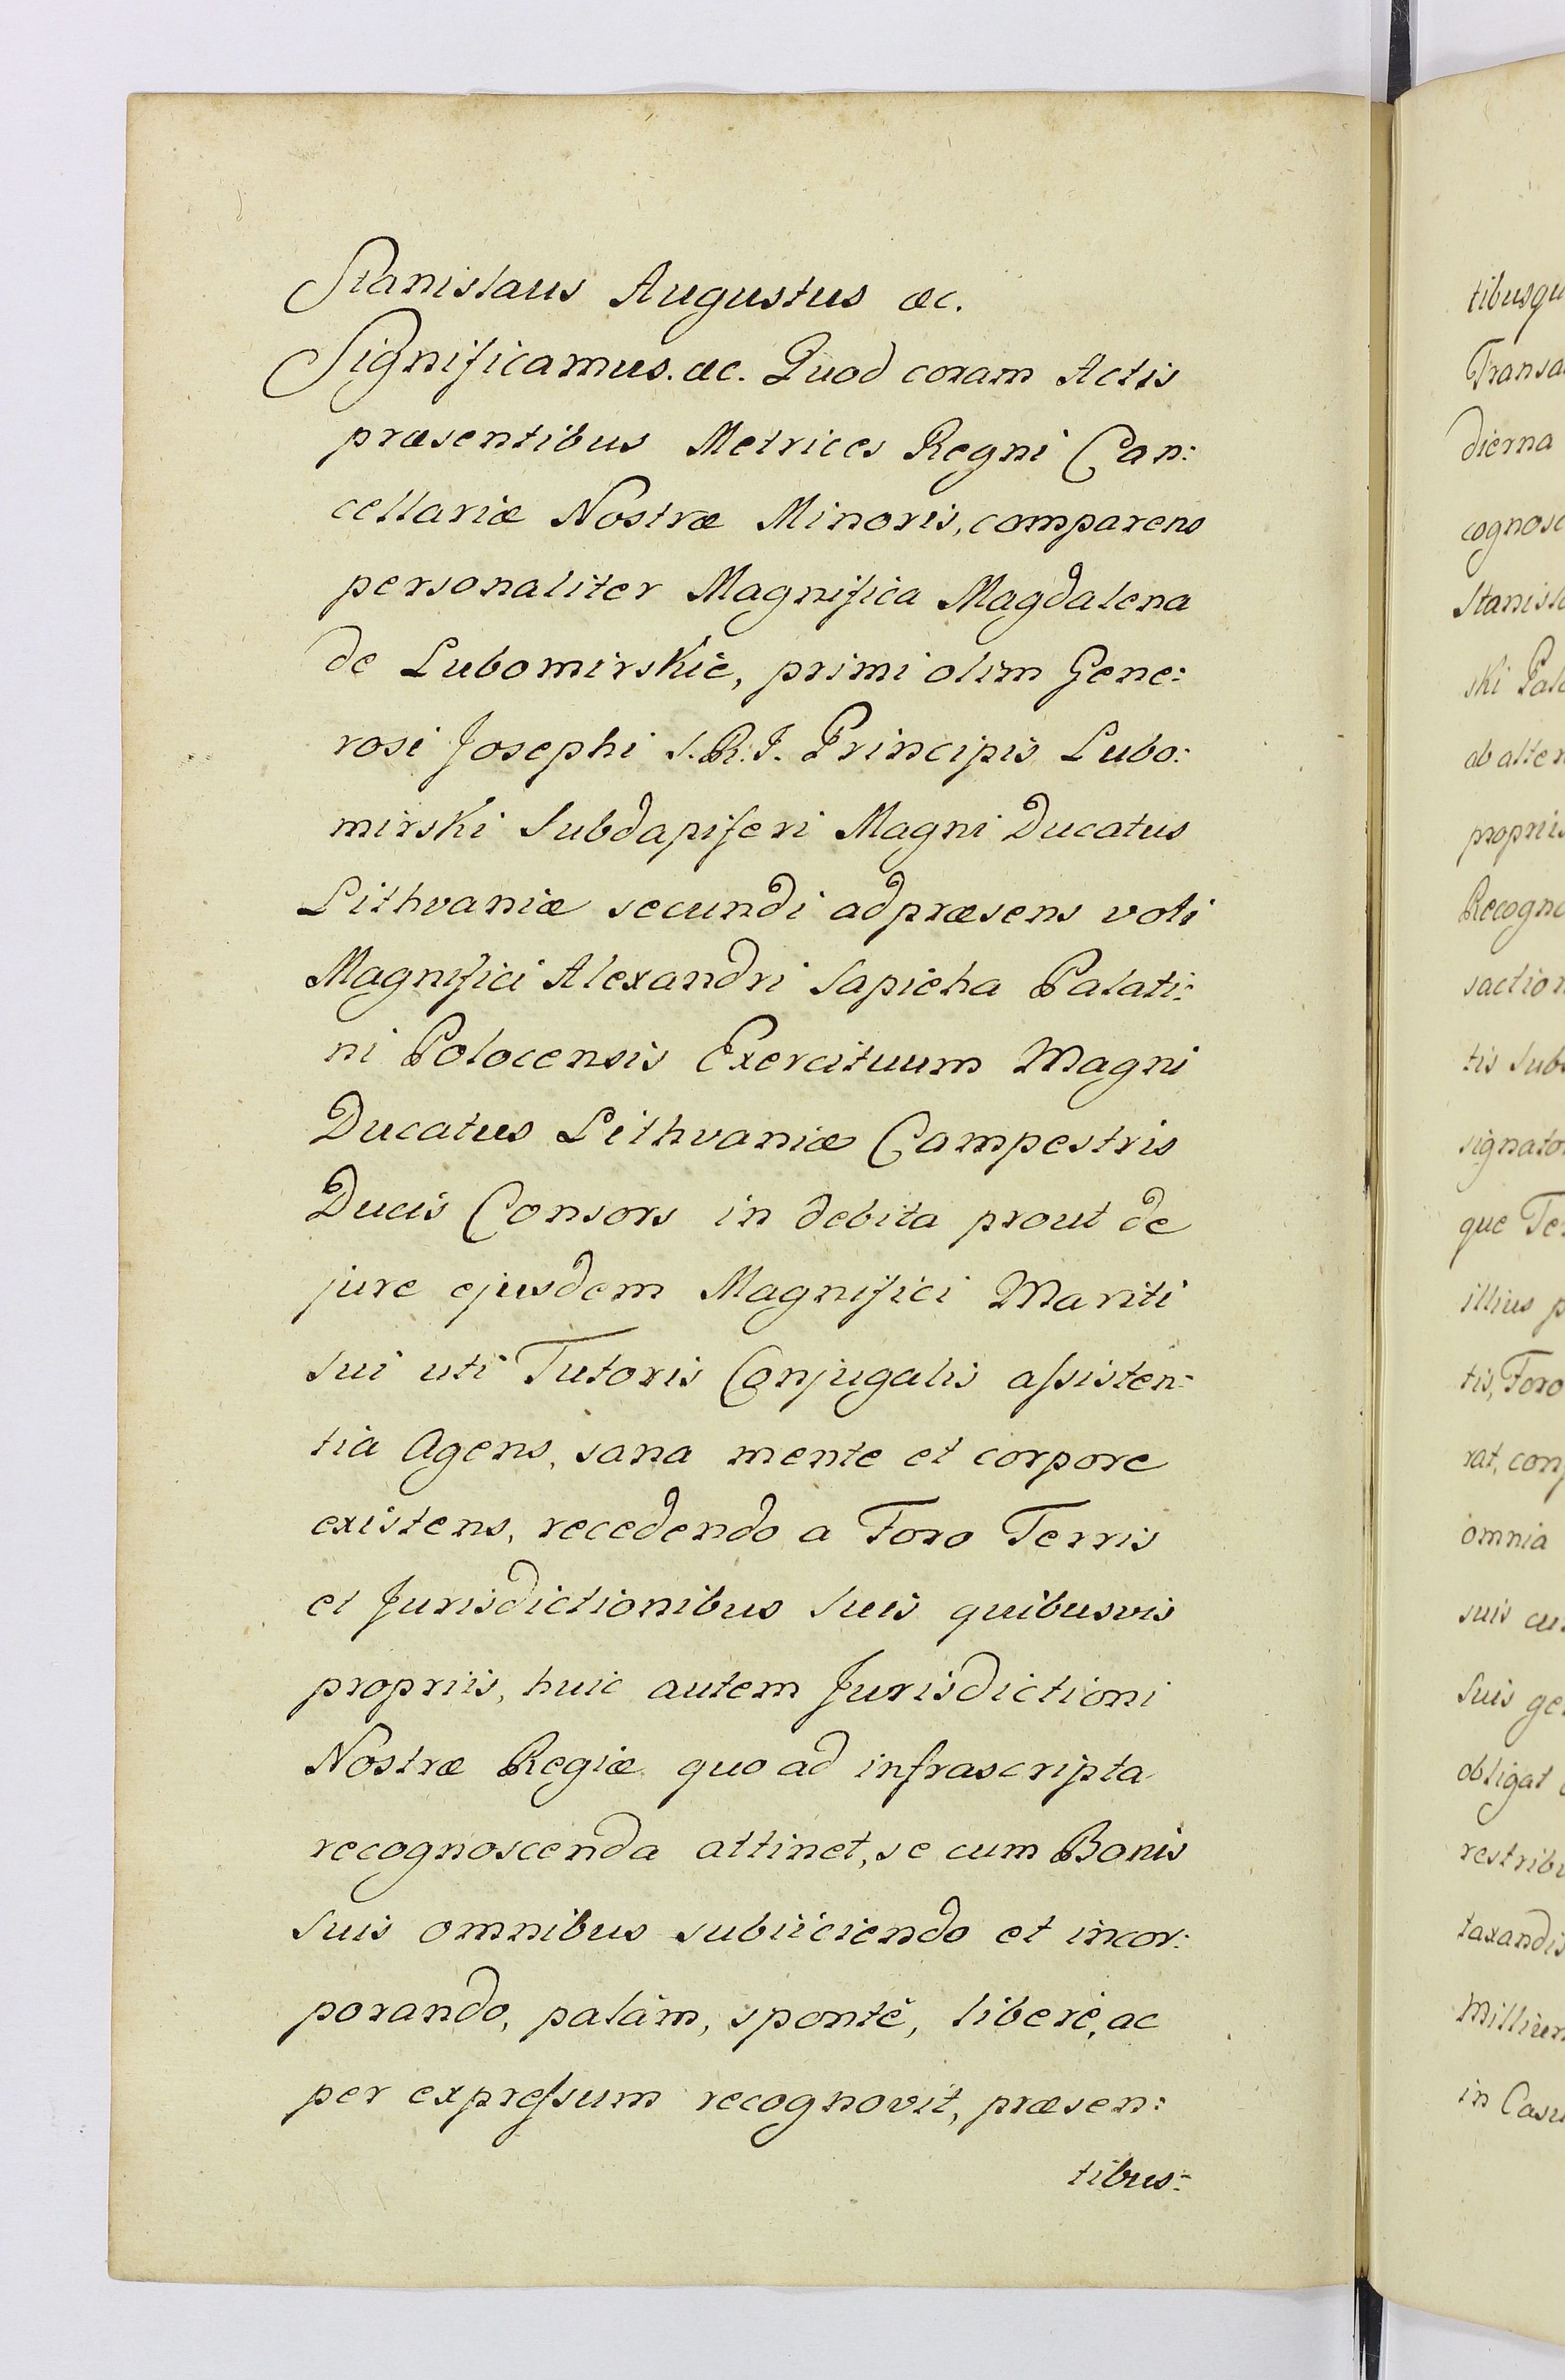 Stanislaus Augustus &c.
Significamus. &c. Quod coram Actis
præsentibus Metrices Regni Can:
cellariæ Nostræ Minoris, comparens
personaliter Magnifica Magdalena
de Lubomirskie, primi olim Gene:
rosi Josephi S.R.I. Principis Lubo:
mirski Subdapiferi Magni Ducatus
Lithvaniæ secundi ad præsens voti
Magnifici Alexandri Sapieha Palati:
ni Polocensis Exercituum Magni
Ducatus Lithvaniæ Campestris
Ducis Consors in debita prout de
jure ejusdem Magnifici Mariti
Sui uti Tutoris Conjugalis aſsisten:
tia Agens, sana mente et corpore
existens, recedendo a Foro Terris
et Jurisdictionibus Suis quibusvis
propriis, huic autem Jurisdictioni
Nostræ Regiæ quo ad infrascripta
recognoscenda attinet, se cum Bonis
Suis omnibus subiiciendo et incor:
porando, palàm, spontè, liberè, ac
per expreſsum recognovit, præsen:
tibus:
tibusqu
Transa
dierna
cognosc
Stanisla
ski Pala
ab alter
propriis
Recogno
saction
tis Sub
signato
que Te
illius p
tis, Foro
rat, con
omnia
suis cu
Suis ge
obligat
restribu
taxandis
Millium
in Casu